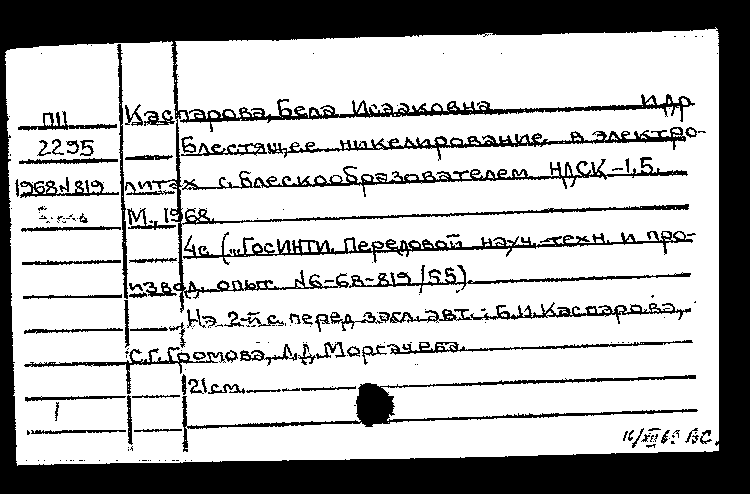 П11 Каспарова, Бела Исааковна и др
2295 Блестящее никелирование в электро-
1968 №819 литах с блескообразователем НДСК-1,5.
М., 1968.
4с („ГосИНТИ. Передовой науч.-техн. и про-
извод. опыт. №6-68-819/55).
На 2-й с. перед загл. авт.: Б.И. Каспарова,
С.Г. Громова, Л.Д. Моргачева.
21 см.
1
16/XII 69 ВС.